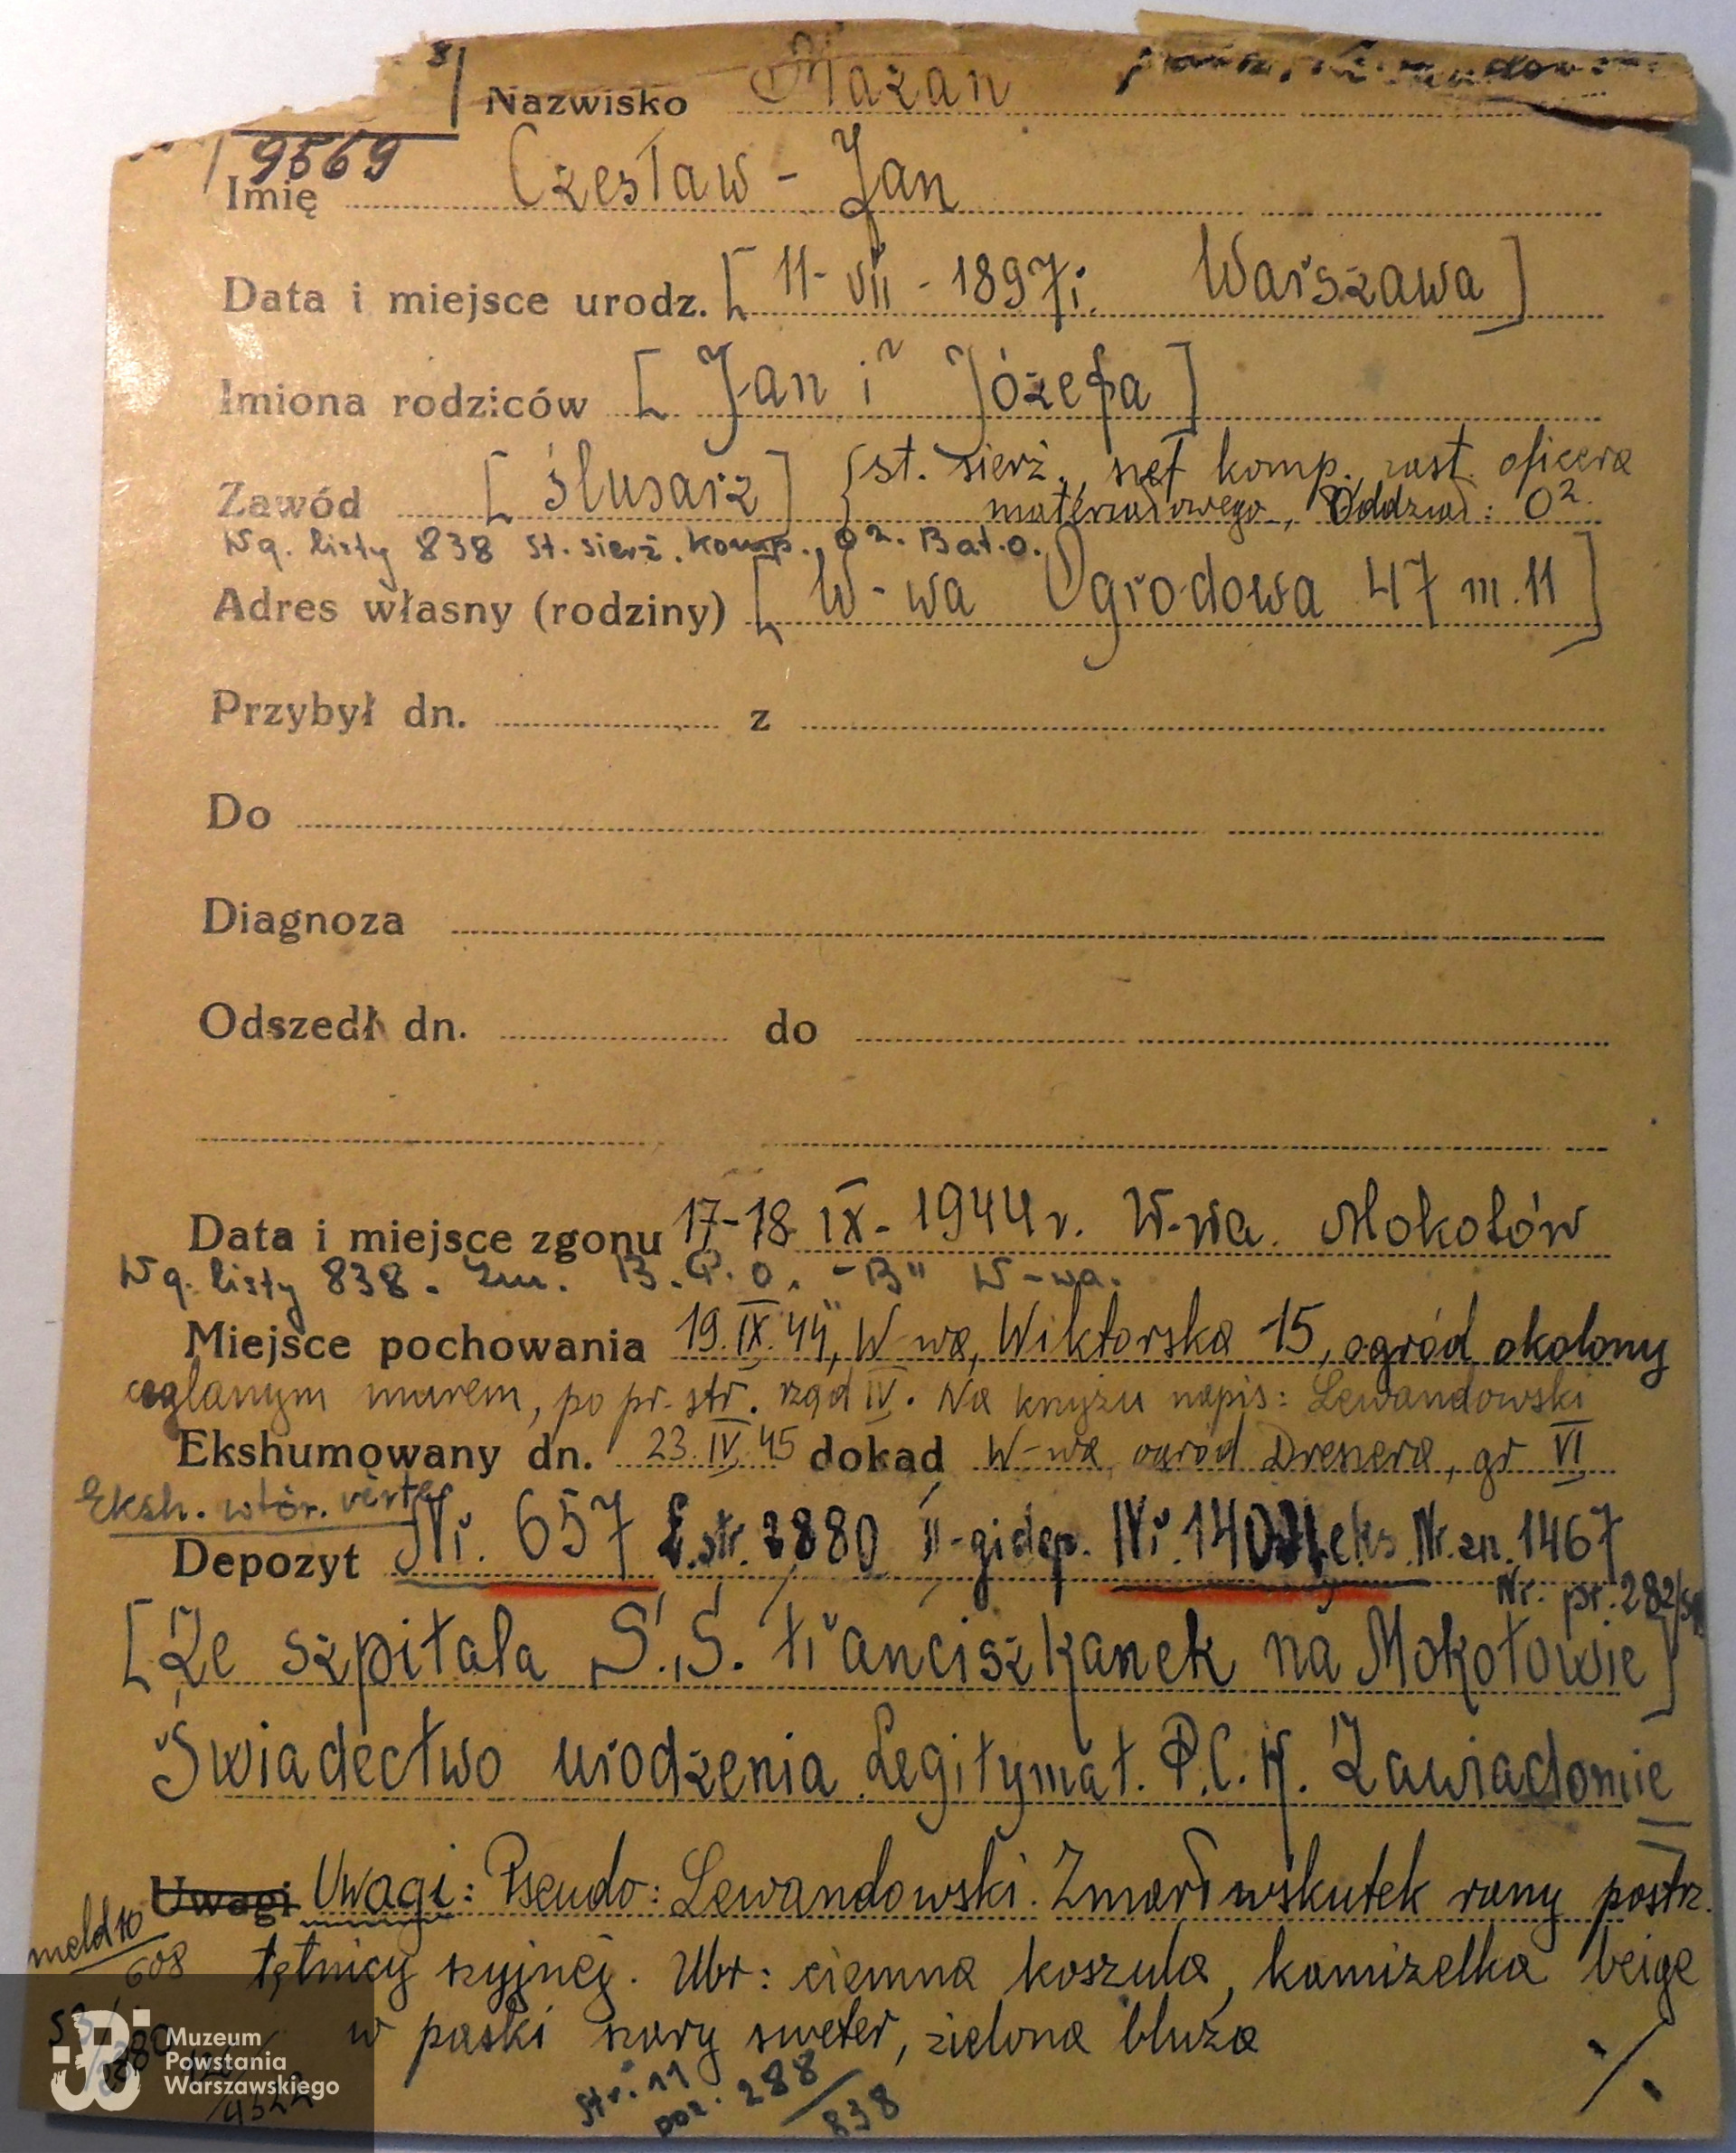 8
Nazwisko Mazan
9569
Imię Czesław - Jan
Data i miejsce urodz. [ 11 - VII - 1897 r. Warszawa ]
Imiona rodziców [ Jan i Józefa ]
[ Ślusarz ] { st. sierż., szef komp., zast. oficera
Zawód materiałowego, Oddział: O2.
Wg. listy 838 st. sierż. komp. O2. Bat. O.
Adres własny (rodziny) [ W-wa Ogrodowa 47 m. 11 ]
Przybył dn. z
Do
Diagnoza
Odszedł dn. do
Data i miejsce zgonu 17-18 IX - 1944 r. W-wa. Mokotów
Wg. listy 838. Zm. B.P.O. - "B" W-wa.
Miejsce pochowania 19.IX.44, W-wa, Wiktorska 15, ogród okolony
ceglanym murem, po pr. str. rząd IV. Na krzyżu napis: Lewandowski
Ekshumowany dn. 23.IV.45 dokąd W-wa ogród Dreszera, gr VI
Eksh. wtór. verte
Depozyt Nr. 657 str. 3880 II-gi dep. Nr. eks. Nr. zn. 1467
Nr. pr. 282/
[ Ze szpitala S.S. Franciszkanek na Mokotowie ]
Świadectwo urodzenia Legitymat. P.C.K. Zawiadomie
Uwagi Uwagi: Pseudo: Lewandowski. Zmarł wskutek rany postrz.
meld 10
608
tętnicy szyjnej. Ubr: ciemna koszula, kamizelka beige
w paski szary sweter, zielona bluza
Muzeum
Powstania
Warszawskiego
4522
str. 11
poz. 288
838